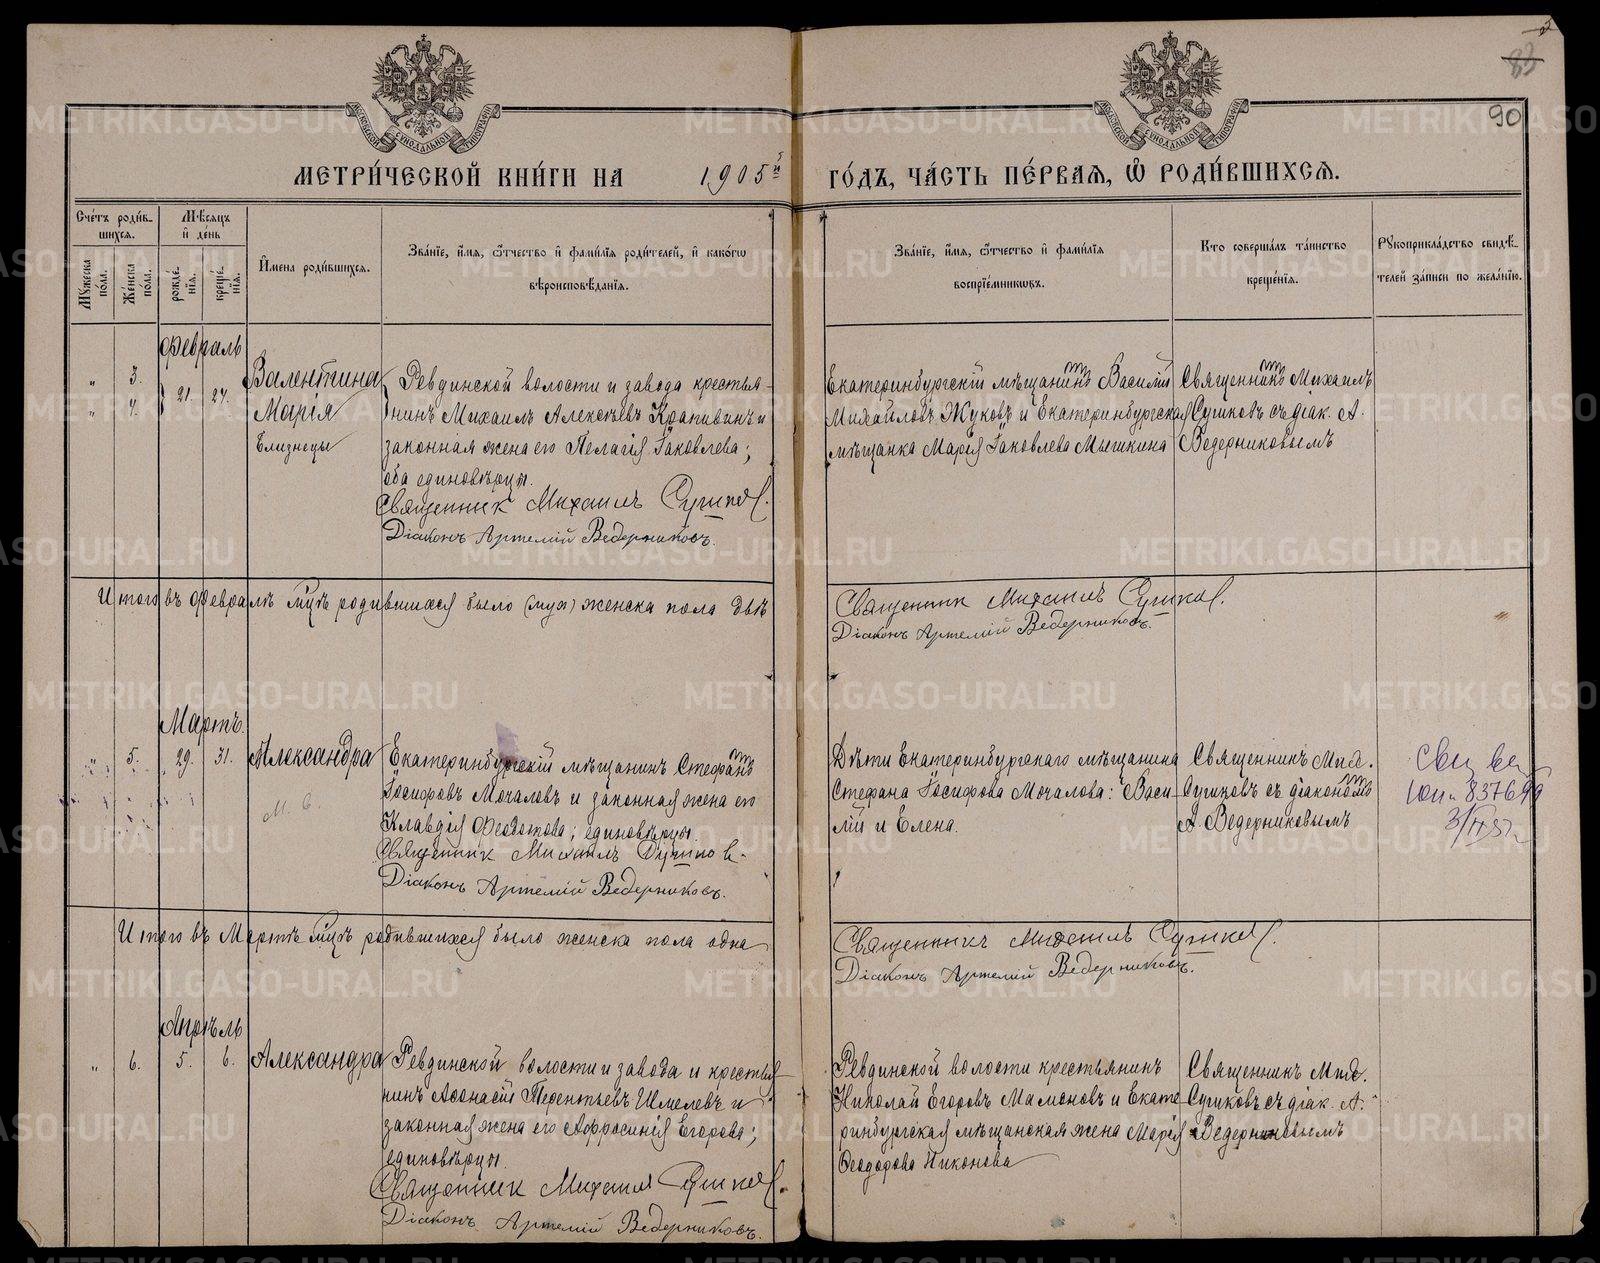 83
90
МЕТРИ́ЧЕСКОЙ КНИ́ГИ НА 1905й ГО́ДЪ, ЧА́СТЬ ПЕ́РВАЯ, Ѽ РОДИ́ВШИХСЯ.
Сче́тъ роди́в-
шихся.
Мужеска
по́ла.
Же́нска
по́ла.
Мѣ́сяцъ
и҆ де́нь
рожде́-
нїя.
креще́-
нїя.
И҆мена роди́вшихся.
Зва́нїе, и҆́мя, ѻ҆́тчество и҆ фами́лїя роди́телей, и҆ како́гѡ
вѣроисповѣ́данїя.
Зва́нїе, и҆́мя, ѻ҆́тчество и҆ фами́лїя
воспрїе́мникѡвъ.
Кто̀ соверша́лъ та́инство
креще́нїя.
Рꙋкоприкла́дство свидѣ́-
телей за́писи по жела́нїю.
Февраль
" 3. 21. 27. Валентина
" 4. Марія
Близнецы
Ревдинской волости и завода крестья-
нинъ Михаилъ Алексѣевъ Крапивинъ и
законная жена его Пелагія Іаковлева;
оба единовѣрцы.
Священник Михаилъ Сушков.
Діаконъ Артемій Ведерниковъ.
Екатеринбургскій мѣщанинъ Василій
Михайловъ Жуковъ и Екатеринбургская
мѣщанка Марія Іаковлева Мышкина
Священникъ Михаилъ
Сушковъ съ діак. А.
Ведерниковымъ
Итого въ Февралѣ мцѣ родившихся было (муж) женска пола двѣ
Священник Михаилъ Сушков.
Діаконъ Артемій Ведерниковъ.
Мартъ
" 5. 29. 31. Александра
М. С.
Екатеринбургскій мѣщанинъ Стефанъ
Іосифовъ Мочаловъ и законная жена его
Клавдія Федотова; единовѣрцы
Священник Михаилъ Сушков.
Діаконъ Артемій Ведерниковъ.
Дѣти Екатеринбургскаго мѣщанина
Стефана Іосифова Мочалова: Васи-
лій и Елена.
Священникъ Мих.
Сушковъ съ діакономъ
А. Ведерниковымъ
Итого въ Мартѣ мцѣ родившихся было женска пола одна
Священникъ Михаилъ Сушков.
Діаконъ Артемій Ведерниковъ.
Апрѣль
" 6. 5. 6. Александра
Ревдинской волости и завода и крестья-
нинъ Аѳонасій Терентьевъ Шмелевъ и
законная жена его Афросинія Егорова;
единовѣрцы.
Священник Михаил Сушков.
Діаконъ Артемій Ведерниковъ.
Ревдинской волости крестьянинъ
Николай Егоровъ Мамоновъ и Екате-
ринбургская мѣщанская жена Марія
Ѳеодорова Никонова
Священникъ Мих.
Сушковъ съ діак. А.
Ведерниковымъ
METRIKI.GASO-URAL.RU